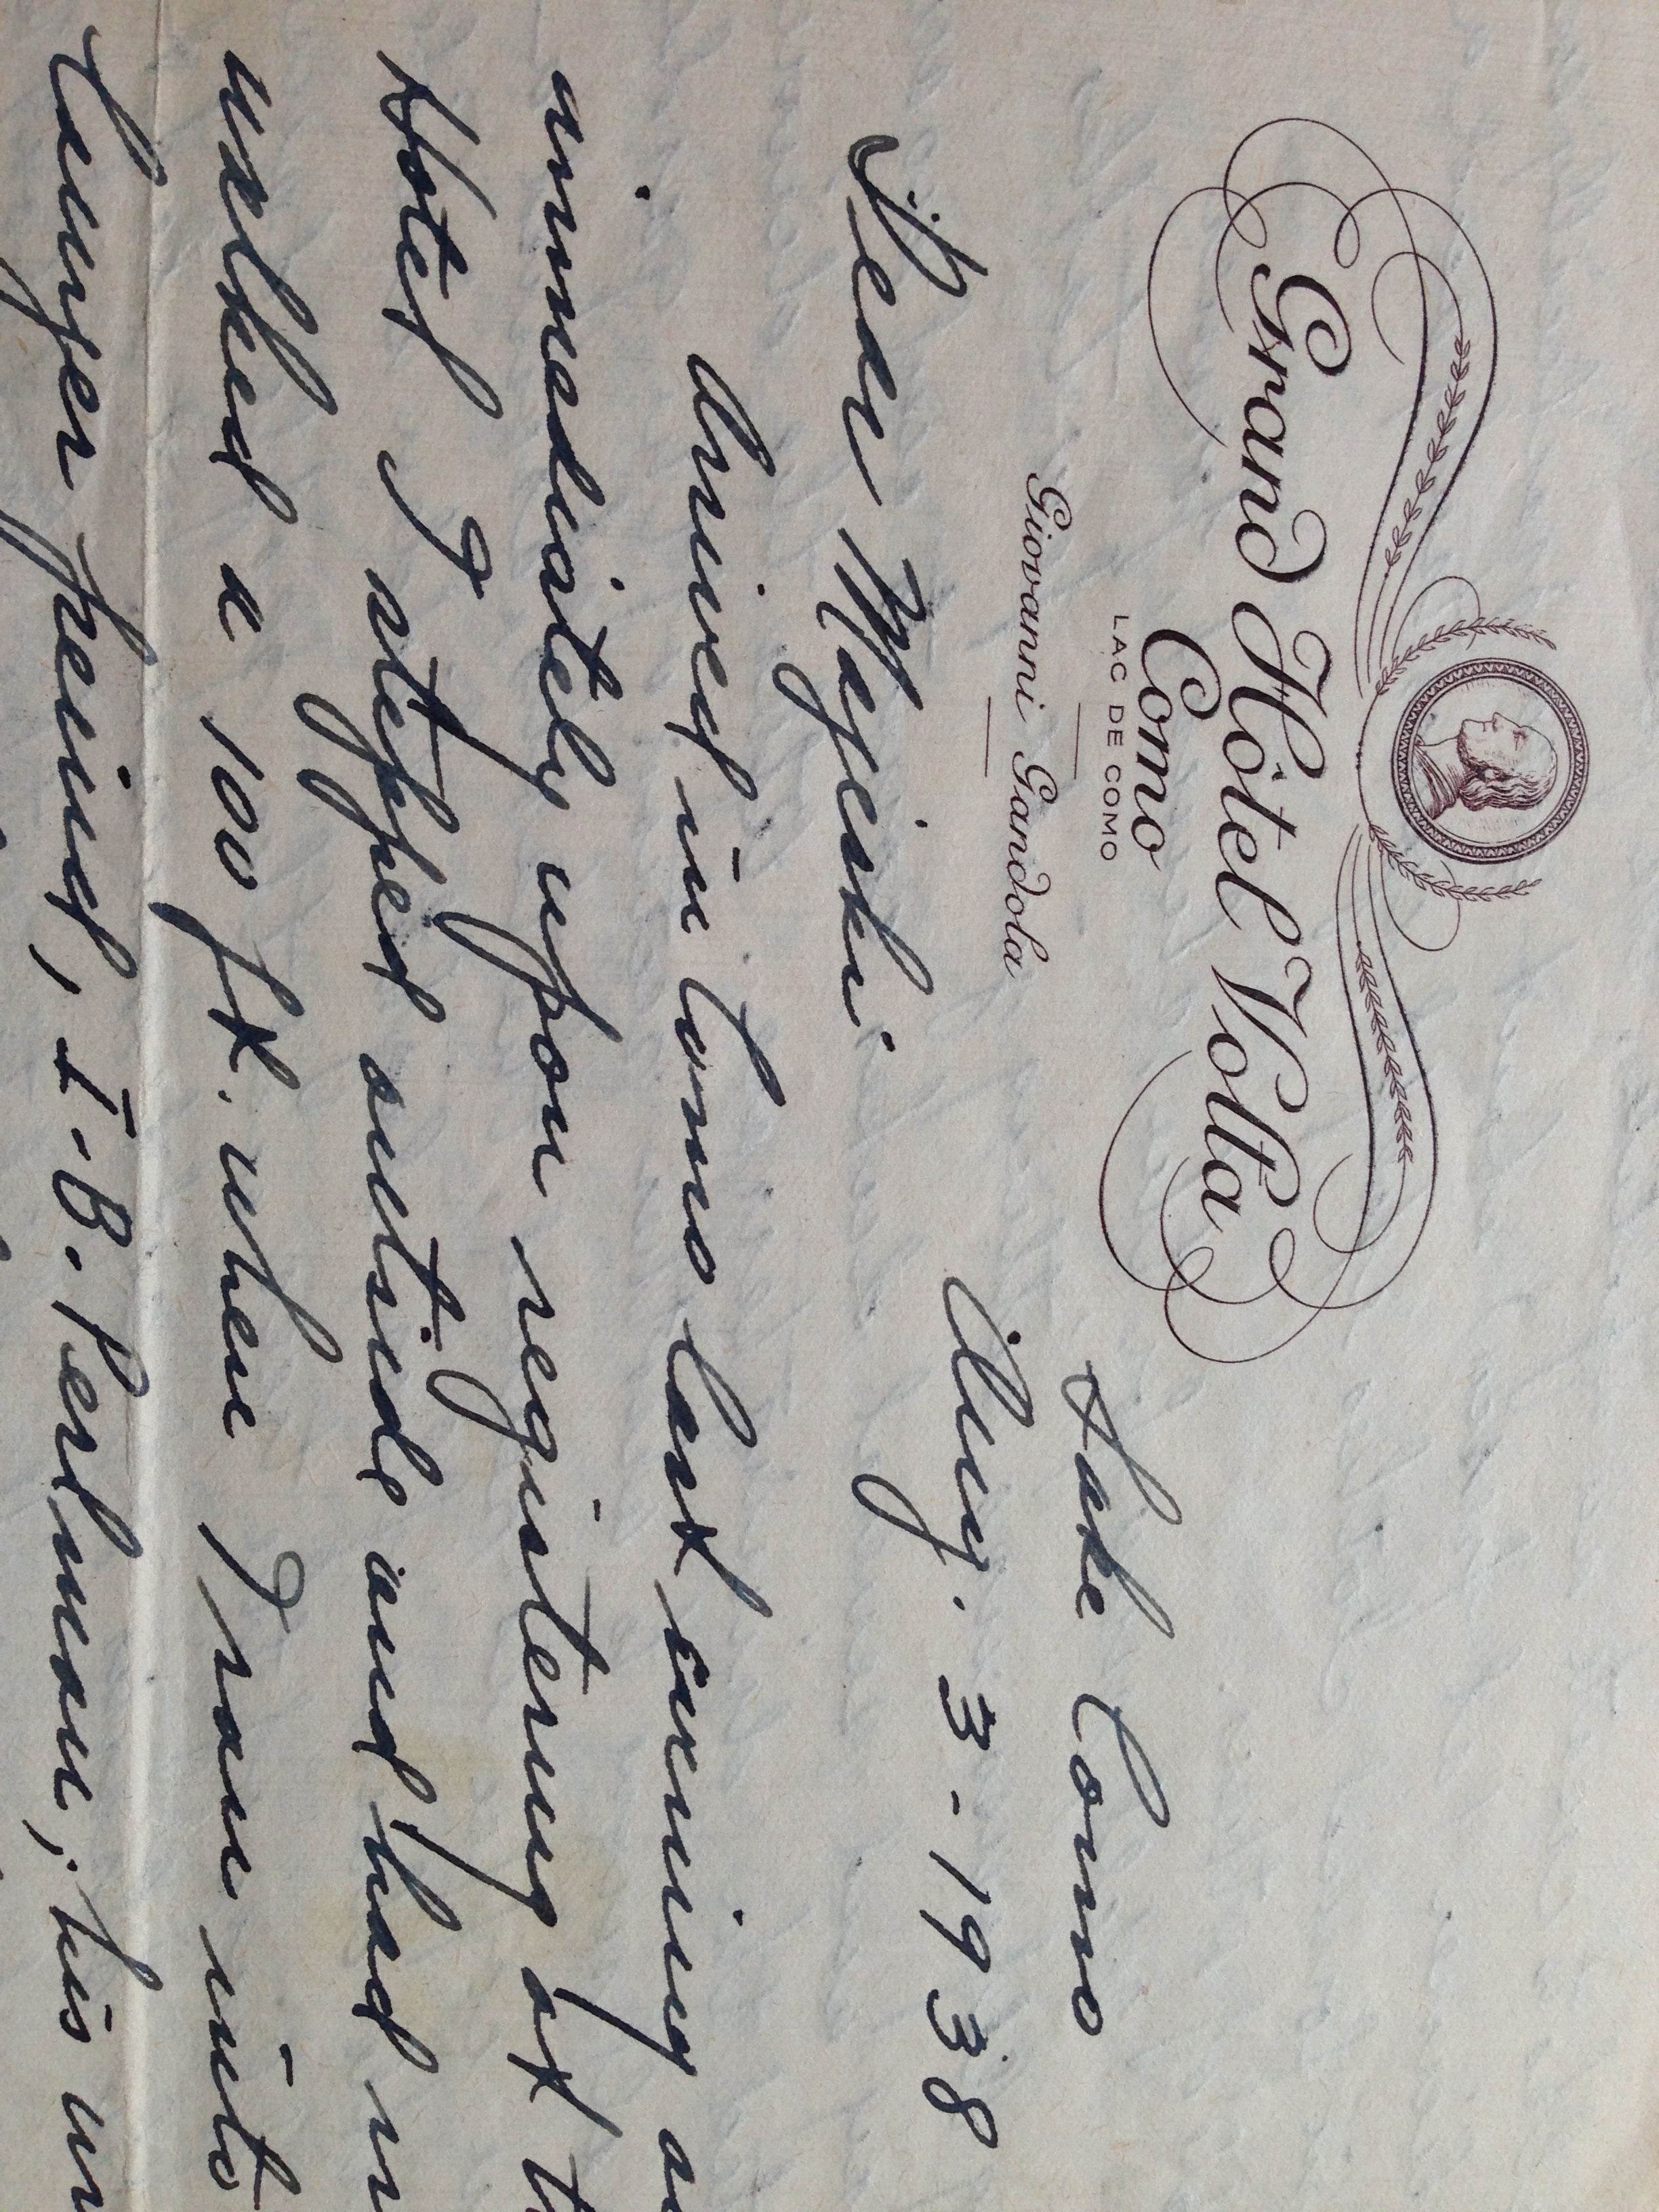 Grand Hôtel Volta
Como
LAC DE COMO
Giovanni Gandola
Lake Como
Aug. 3 - 1938
Dear Majeski.
Arrived in Como last evening
immediately upon registering at
Hotel I stepped outside and had
walked a 100 ft. when I ran into
Lawyer friend, I. B. Perlman, his